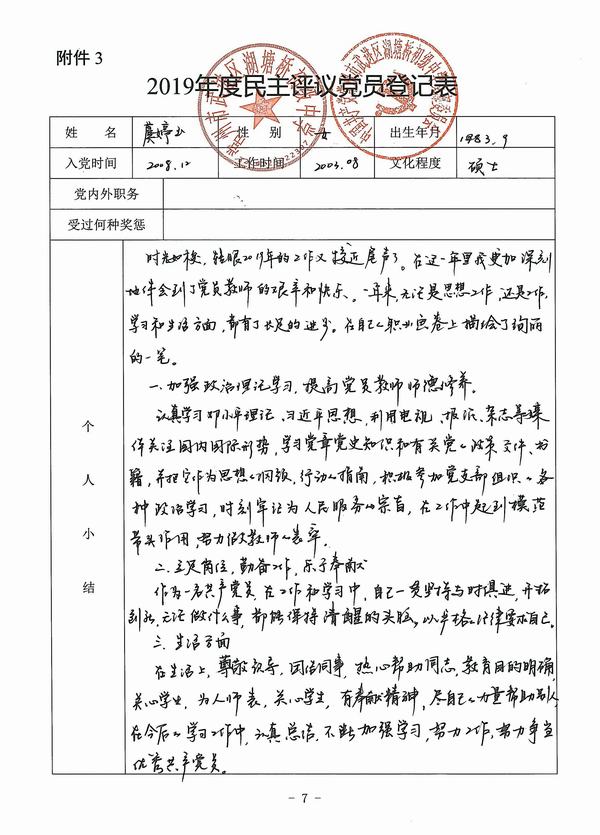 附件 3
2019年度民主评议党员登记表
姓 名 性 别 女 出生年月 1983.9
入党时间 2008.12 工作时间 2003.08 文化程度 硕士
党内外职务
受过何种奖惩
个人小结
时光如梭，转眼2019年的工作又接近尾声了。在这一年里我更加深刻
地体会到了党员教师的艰辛和快乐、一年来，无论是思想工作，还是工作，
学习和生活方面，都有了长足的进步。在自己的职业画卷上描绘了绚丽
的一笔。
一、加强政治理论学习，提高党员教师师德修养。
认真学习邓小平理论、习近平思想，利用电视、报纸、杂志等媒
体关注国内国际形势，学习党章党史知识和有关党的政策文件、书
籍，并把它作为思想的纲领，行动的指南，积极参加党支部组织的各
种政治学习，时刻牢记为人民服务的宗旨，在工作中起到模范
带头作用，努力做教师的表率。
二、立足岗位，勤奋工作，乐于奉献
作为一名共产党员，在工作和学习中，自己一贯坚持与时俱进，开拓
创新，无论做什么事，都能保持清醒的头脑，以严格的法律要求自己。
三、生活方面
在生活上，尊敬领导，团结同事，热心帮助同志，教育目的明确，
关心学生，为人师表，关心学生，有奉献精神，尽自己的力量帮助别人
在今后的学习工作中，认真总结，不断加强学习，努力工作，努力争当
优秀共产党员。
- 7 -